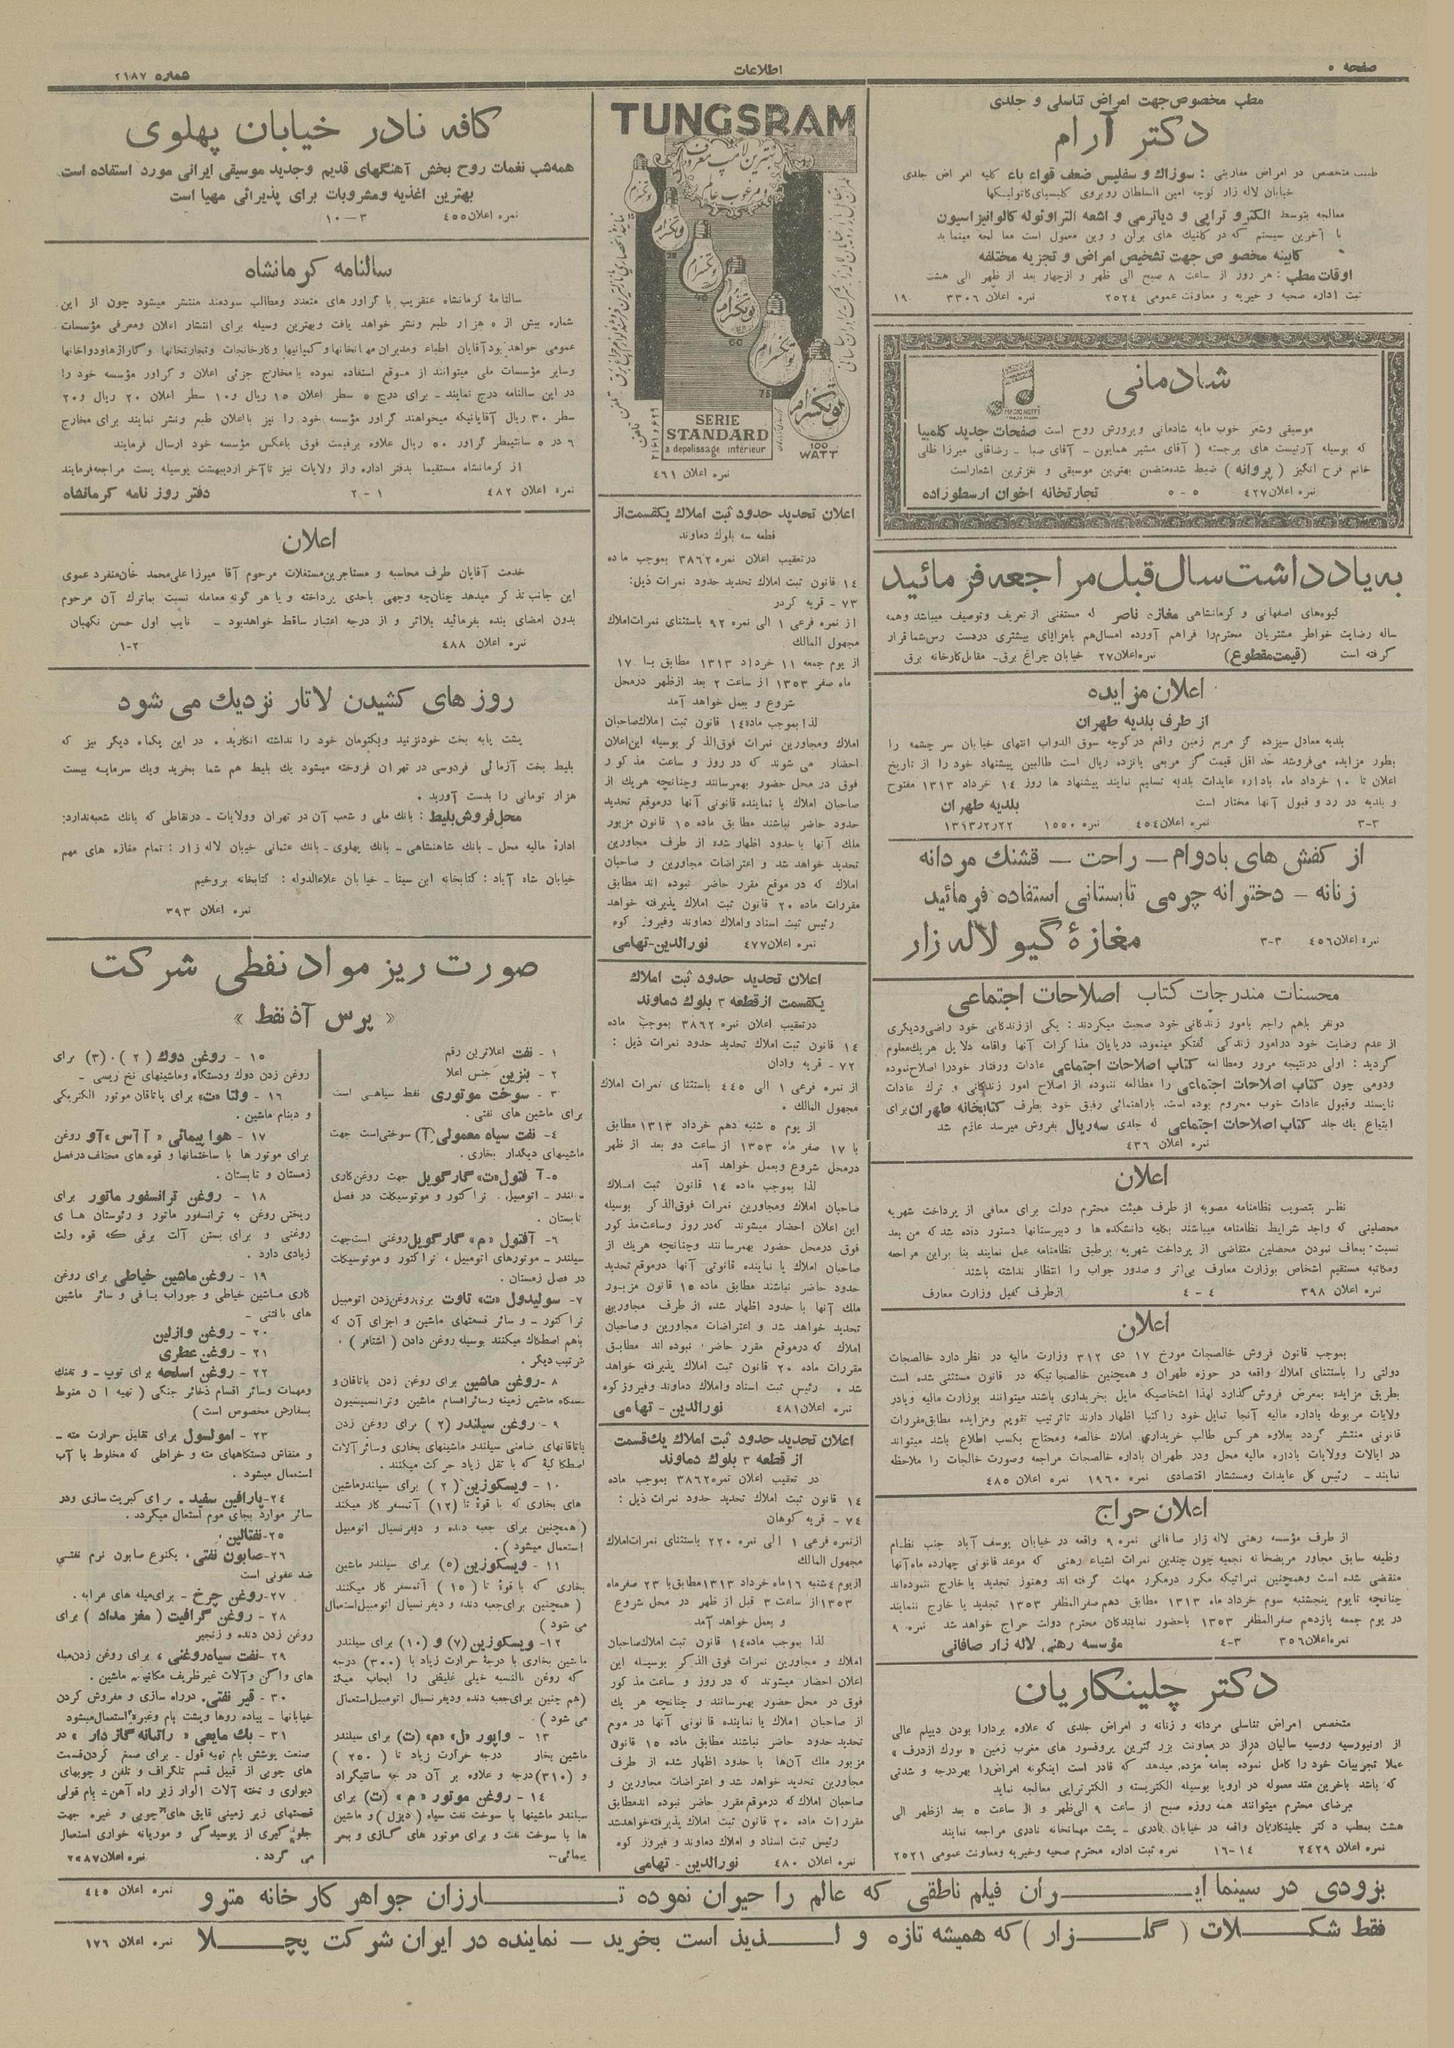 صفحه ۵
اطلاعات
شماره ۲۱۸۷
مطب مخصوص جهت امراض تناسلی و جلدی
دکتر آرام
طبیب متخصص در امراض مقاربتی : سوزاك و سفلیس ضعف قواء باء كلیه امراض جلدی
خیابان لاله زار کوچه امین السلطان روبروی کلیسیای کاتولیکها
معالجه بتوسط الکترو تراپی و دیاترمی و اشعه التراویوله کالوانیزاسیون
با آخرین سیستم که در کلنیك های برلن و وین معمول است معالجه مینماید
کابینه مخصوص جهت تشخیص امراض و تجزیه مختلفه
اوقات مطب : هر روز از ساعت ۸ صبح الی ظهر و ازچهار بعد از ظهر الی هشت
ثبت اداره صحیه و خیریه و معاونت عمومی ۲۵۲٤ نمره اعلان ۳۳۰٦ ۱۹
شادمانی
موسیقی وشعر خوب مایه شادمانی وپرورش روح است صفحات جدید کلمبیا
که بوسیله آرتیست های برجسته ( آقای مشیر همایون - آقای صبا - رضاقلی میرزا ظلی
خانم فرح انگیز ( پروانه ) ضبط شده متضمن بهترین موسیقی و نغزترین اشعار است
نمره اعلان ٤۲۷ ۵ - ۵ تجارتخانه اخوان ارسطوزاده
به یادداشت سال قبل مراجعه فرمائید
گیوه‌های اصفهانی و کرمانشاهی مغازه ناصر که مستغنی از تعریف وتوصیف میباشد وهمه
ساله رضایت خواطر مشتریان محترم را فراهم آورده امسال هم بامزایای بیشتری دردست رس شما قرار
گرفته است (قیمت مقطوع) نمره اعلان ۲۷ خیابان چراغ برق - مقابل کارخانه برق
اعلان مزایده
از طرف بلدیه طهران
بلدیه معادل سیزده گز مربع زمین واقع در کوچه سوق الدواب انتهای خیابان سر چشمه را
بطور مزایده می‌فروشد حد اقل قیمت گز مربعی پانزده ریال است طالبین پیشنهاد خود را از تاریخ
اعلان تا ۱۰ خرداد ماه باداره عایدات بلدیه تسلیم نمایند پیشنهاد ها روز ۱٤ خرداد ۱۳۱۳ مفتوح
و بلدیه در رد و قبول آنها مختار است بلدیه طهران
۳-۳ نمره اعلان ٤۵٤ نمره ۱۵۵۰ ۱۳۱۳/۲/۲۲
از کفش های بادوام - راحت - قشنك مردانه
زنانه - دخترانه چرمی تابستانی استفاده فرمائید
نمره اعلان ٤۵٦ ۳-۳ مغازهٔ گیو لاله زار
محسنات مندرجات کتاب اصلاحات اجتماعی
دونفر باهم راجع بامور زندگانی خود صحبت میکردند : یکی اززندگانی خود راضی ودیگری
از عدم رضایت خود درامور زندگی گفتگو مینمود، درپایان مذاکرات آنها واقامه دلایل هریك معلوم
گردید : اولی درنتیجه مرور ومطالعه کتاب اصلاحات اجتماعی عادات ورفتار خودرا اصلاح نموده
ودومی چون کتاب اصلاحات اجتماعی را مطالعه ننموده از اصلاح امور زندگانی و ترك عادات
ناپسند وقبول عادات خوب محروم بوده است. باراهنمائی رفیق خود بطرف کتابخانه طهران برای
ابتیاع یك جلد کتاب اصلاحات اجتماعی که جلدی سه ریال بفروش میرسد عازم شد
نمره اعلان ٤۳٦
اعلان
نظر بتصویب نظامنامه مصوبه از طرف هیئت محترم دولت برای معافی از پرداخت شهریه
محصلینی که واجد شرایط نظامنامه میباشند بکلیه دانشکده ها و دبیرستانها دستور داده شد که من بعد
نسبت بمعاف نمودن محصلین متقاضی از پرداخت شهریه برطبق نظامنامه عمل نمایند بنا براین مراجعه
ومکاتبه مستقیم اشخاص بوزارت معارف بی‌اثر و صدور جواب را انتظار نداشته باشند
نمره اعلان ۳۹۸ ٤ - ٤ ازطرف کفیل وزارت معارف
اعلان
بموجب قانون فروش خالصجات مورخ ۱۷ دی ۳۱۲ وزارت مالیه در نظر دارد خالصجات
دولتی را باستثنای املاك واقعه در حوزه طهران و همچنین خالصجاتیکه در قانون مستثنی شده است
بطریق مزایده بمعرض فروش گذارد لهذا اشخاصیکه مایل بخریداری باشند میتوانند بوزارت مالیه ویادر
ولایات مربوطه باداره مالیه آنجا تمایل خود را کتبا اظهار دارند تاترتیب تقویم ومزایده مطابق مقررات
قانونی منتشر گردد بعلاوه هر کس طالب خریداری املاك خالصه ومحتاج بکسب اطلاع باشد میتواند
در ایالات وولایات باداره مالیه محل ودر طهران باداره خالصجات مراجعه وصورت خالجات را ملاحظه
نمایند - رئیس کل عایدات ومستشار اقتصادی نمره ۱۹٦۰ نمره اعلان ٤۸۵
اعلان حراج
از طرف مؤسسه رهنی لاله زار صافانی نمره ۹ واقعه در خیابان یوسف آباد جنب نظام
وظیفه سابق مجاور مریضخانه نجمیه چون چندین نمرات اشیاء رهنی که موعد قانونی چهارده ماه آنها
منقضی شده است وهمچنین نمراتیکه مکرر درمکرر مهلت گرفته اند وهنوز تجدید یا خارج ننموده‌اند
چنانچه تایوم پنجشنبه سوم خرداد ماه ۱۳۱۳ مطابق دهم صفرالمظفر ۱۳۵۳ تجدید یا خارج ننمایند
در یوم جمعه یازدهم صفرالمظفر ۱۳۵۳ باحضور نمایندگان محترم دولت حراج خواهد شد نمره ۹
نمره اعلان ۳۵٦ ٤-۳ مؤسسه رهنی لاله زار صافانی
دکتر چلینکاریان
متخصص امراض تناسلی مردانه و زنانه و امراض جلدی که علاوه بردارا بودن دیپلم عالی
از اونیورسیه روسیه سالیان دراز در معاونت بزر گترین پروفسور های مغرب زمین
عملا تجربیات خود را کامل نموده بعامه مژده میدهد که قادر است اینگونه امراض را بهردرجه و شدتی
که باشد باخرین متد معموله در اروپا بوسیله الکتریسته و الکتروتراپی معالجه نماید
مرضای محترم میتوانند همه روزه صبح از ساعت ۹ الی ظهر و از ساعت ۵ بعد ازظهر الی
هشت بمطب دکتر چلینکاریان واقعه در خیابان نادری - پشت مهمانخانه نادری مراجعه نمایند
نمره اعلان ۲٤۲۹ ۱٤-۱٦ نمره ثبت اداره محترم صحیه وخیریه ومعاونت عمومی ۲۵۲۱
TUNGSRAM
بهترین لامپ معروف
و مرغوب عالم
تونگسرام
تونگسرام
تونگسرام
تونگسرام
تونگسرام
تونگسرام
15
25
60
75
100
WATT
SERIE
STANDARD
a depolissage intérieur
نمره اعلان ٤٦۱
اعلان تحدید حدود ثبت املاك یکقسمت از
قطعه سه بلوك دماوند
درتعقیب اعلان نمره ۳۸٦۲ بموجب ماده
۱٤ قانون ثبت املاك تحدید حدود نمرات ذیل:
۷۳ - قریه کردر
از نمره فرعی ۱ الی نمره ۹۲ باستثنای نمرات املاك
مجهول المالك
از یوم جمعه ۱۱ خرداد ۱۳۱۳ مطابق با ۱۷
ماه صفر ۱۳۵۳ از ساعت ۲ بعد ازظهر درمحل
شروع و بعمل خواهد آمد
لذا بموجب ماده ۱٤ قانون ثبت املاك صاحبان
املاك ومجاورین نمرات فوق الذکر بوسیله این اعلان
احضار می شوند که در روز و ساعت مذکور
فوق در محل حضور بهمرسانند وچنانچه هریك از
صاحبان املاك یا نماینده قانونی آنها درموقع تحدید
حدود حاضر نباشند مطابق ماده ۱۵ قانون مزبور
ملك آنها با حدود اظهار شده از طرف مجاورین
تحدید خواهد شد و اعتراضات مجاورین و صاحبان
املاك که درموقع مقرر حاضر نبوده اند مطابق
مقررات ماده ۲۰ قانون ثبت املاك پذیرفته خواهد
رئیس ثبت اسناد واملاك دماوند وفیروز کوه
نمره اعلان ٤۷۷ نورالدین - تهامی
اعلان تحدید حدود ثبت املاك
یکقسمت ازقطعه ۳ بلوك دماوند
درتعقیب اعلان نمره ۳۸٦۲ بموجب ماده
۱٤ قانون ثبت املاك تحدید حدود نمرات ذیل :
۷۲ - قریه وادان
از نمره فرعی ۱ الی ٤٤۵ باستثنای نمرات املاك
مجهول المالك .
از یوم ۵ شنبه دهم خرداد ۱۳۱۳ مطابق
با ۱۷ صفر ماه ۱۳۵۳ از ساعت دو بعد از ظهر
درمحل شروع وبعمل خواهد آمد
لذا بموجب ماده ۱٤ قانون ثبت املاك
صاحبان املاك ومجاورین نمرات فوق الذکر بوسیله
این اعلان احضار میشوند که در روز وساعت مذکور
فوق درمحل حضور بهمرسانند وچنانچه هریك از
صاحبان املاك یا نماینده قانونی آنها درموقع تحدید
حدود حاضر نباشند مطابق ماده ۱۵ قانون مزبور
ملك آنها با حدود اظهار شده از طرف مجاورین
تحدید خواهد شد و اعتراضات مجاورین وصاحبان
املاك که درموقع مقرر حاضر نبوده اند مطابق
مقررات ماده ۲۰ قانون ثبت املاك پذیرفته خواهد
شد . رئیس ثبت اسناد واملاك دماوند وفیروزکوه
نمره اعلان ٤۸۱ نورالدین - تهامی
اعلان تحدید حدود ثبت املاك یك قسمت
از قطعه ۳ بلوك دماوند
در تعقیب اعلان نمره ۳۸٦۲ بموجب ماده
۱٤ قانون ثبت املاك تحدید حدود نمرات ذیل :
۷٤ - قریه کوهان
ازنمره فرعی ۱ الی نمره ۲۲۰ باستثنای نمرات املاك
مجهول المالك
ازیوم ٤ شنبه ۱٦ ماه خرداد ۱۳۱۳ مطابق با ۲۳ صفر ماه
۱۳۵۳ از ساعت ۳ قبل از ظهر در محل شروع
و بعمل خواهد آمد
لذا بموجب ماده ۱٤ قانون ثبت املاك صاحبان
املاك و مجاورین نمرات فوق الذکر بوسیله این
اعلان احضار میشوند که در روز و ساعت مذکور
فوق در محل حضور بهمرسانند و چنانچه هر یك
از صاحبان املاك یا نماینده قانونی آنها در موم
تحدید حدود حاضر نباشند مطابق ماده ۱۵ قانون
مزبور ملك آن‌ها با حدود اظهار شده از طرف
مجاورین تحدید خواهد شد و اعتراضات مجاورین و
صاحبان املاك که درموقع مقرر حاضر نبوده اند مطابق
مقررات ماده ۲۰ قانون ثبت املاك پذیرفته خواهد شد
رئیس ثبت اسناد و املاك دماوند و فیروز کوه
نمره اعلان ٤۸۰ نورالدین - تهامی
کافه نادر خیابان پهلوی
همه‌شب نغمات روح بخش آهنگهای قدیم وجدید موسیقی ایرانی مورد استفاده است
بهترین اغذیه ومشروبات برای پذیرائی مهیا است
نمره اعلان ٤۵۵ ۳-۱۰
سالنامه کرمانشاه
سالنامهٔ کرمانشاه عنقریب با گراور های متعدد ومطالب سودمند منتشر میشود چون از این
شماره بیش از ۵ هزار طبع ونشر خواهد یافت وبهترین وسیله برای انتشار اعلان ومعرفی مؤسسات
عمومی خواهد بود آقایان اطباء ومدیران مهمانخانها وکمپانیها وکارخانجات وتجارتخانها وگاراژها ودواخانها
وسایر مؤسسات ملی میتوانند از موقع استفاده نموده با مخارج جزئی اعلان و گراور مؤسسه خود را
در این سالنامه درج نمایند - برای درج ۵ سطر اعلان ۱۵ ریال و۱۰ سطر اعلان ۲۰ ریال و۲۰
سطر ۳۰ ریال آقایانیکه میخواهند گراور مؤسسه خود را نیز بااعلان طبع ونشر نمایند برای مخارج
٦ در ۵ سانتیمتر گراور ۵۰ ریال علاوه برقیمت فوق باعکس مؤسسه خود ارسال فرمایند
از کرمانشاه مستقیما بدفتر اداره واز ولایات نیز تا آخر اردیبهشت بوسیله پست مراجعه فرمایند
نمره اعلان ٤۸۲ ۱ - ۲ دفتر روز نامه کرمانشاه
اعلان
خدمت آقایان طرف محاسبه و مستاجرین مستغلات مرحوم آقا میرزا علی محمد خان منفرد عموی
این جانب تذکر میدهد چنانچه وجهی باحدی پرداخته و یا هر گونه معامله نسبت بماترك آن مرحوم
بدون امضای بنده بفرمائید بلااثر و از درجه اعتبار ساقط خواهد بود - نایب اول حسن نگهبان
نمره اعلان ٤۸۸ ۲-۱
روز های کشیدن لاتار نزدیك می شود
پشت پابه بخت خودنزنید ویکتومان خود را نداشته انگارید . در این یکماه دیگر نیز که
بلیط بخت آزمائی فردوسی در تهران فروخته میشود یك بلیط هم شما بخرید ویك سرمایه بیست
هزار تومانی را بدست آورید .
محل فروش بلیط : بانك ملی و شعب آن در تهران وولایات - درنقاطی که بانك شعبه ندارد:
ادارهٔ مالیه محل - بانك شاهنشاهی - بانك پهلوی - بانك عثمانی خیابان لاله زار : تمام مغازه های مهم
خیابان شاه آباد : کتابخانه ابن سینا - خیابان علاءالدوله : کتابخانه بروخیم
نمره اعلان ۳۹۳
صورت ریز مواد نفطی شرکت
« پرس آذ نفط »
۱ - نفت اعلاترین رقم
۲ - بنزین جنس اعلا
۳ - سوخت موتوری نفط سیاهی است
برای ماشین های نفتی .
٤ - نفت سیاه معمولی (آ) سوختی است جهت
ماشینهای دیگدار بخاری .
۵ - آ فتول «ت» گارگویل جهت روغن کاری
سلندر - اتومبیل . تراکتور و موتوسیکلت در فصل
تابستان .
٦ - آفتول «م» گارگویل روغنی است جهت
سیلندر - موتورهای اتومبیل ، تراکتور و موتوسیکلت
در فصل زمستان .
۷ - سولیدول «ت» تاوت برای روغن زدن اتومبیل
تراکتور - و سائر قسمتهای ماشین و اجزای آن که
باهم اصطکاك میکنند بوسیله روغن دادن ( اشتافر )
ترتیب دیگر .
۸ - روغن ماشین برای روغن زدن یاتاقان و
دستگاه ماشین زمینه و سائر اقسام ماشین وترانسمیسیون
۹ - روغن سیلندر (۲) برای روغن زدن
یاتاقانهای ضامنی سیلندر ماشینهای بخاری وسائر آلات
اصطکاکیه که با ثقل زیاد حرکت میکنند .
۱۰ - ویسکوزین (۲) برای سیلندر ماشین
های بخاری که با قوهٔ تا (۱۲) آتمسفر کار میکند
( همچنین برای جعبه دنده و دیفرنسیال اتومبیل
استعمال میشود ) .
۱۱ - ویسکوزین (۵) برای سیلندر ماشین
بخاری که با قوهٔ تا (۱۵) آتمسفر کار میکنند
( همچنین برای جعبه دنده و دیفرنسیال اتومبیل استعمال
می شود )
۱۲ - ویسکوزین (۷) و (۱۰) برای سیلندر
ماشین بخاری با درجهٔ حرارت زیاد تا (۳۰۰) درجه
که روغن بالنسبه خیلی غلیظی را ایجاب میکند
(هم چنین برای جعبه دنده ودیفرنسیال اتومبیل استعمال
می شود ) .
۱۳ - واپور «ل» «م» (ت) برای سیلندر
ماشین بخار درجه حرارت زیاد تا (۲۵۰)
و (۳۱۰) درجه و علاوه بر آن در جه سانتیگراد
۱٤ - روغن موتور «م» (ت) برای
سیلندر ماشینها با سوخت نفت سیاه (دیزل) و ماشین
ها با سوخت نفت و برای موتور های گازی و بحر
پیمائی -
۱۵ - روغن دوك (۲) ، (۳) برای
روغن زدن دوك ودستگاه وماشینهای نخ ریسی -
۱٦ - ولتا «ت» برای یاتاقان موتور الکتریکی
و دینام ماشین .
۱۷ - هوا پیمائی « آ آس » آو روغن
برای موتور ها با ساختمانها و قوه های مختلف درفصل
زمستان و تابستان .
۱۸ - روغن ترانسفور ماتور برای
ریختن روغن به ترانسفور ماتور و رئوستان های
روغنی و برای بستن آلت برقی که قوه ولت
زیادی دارد .
۱۹ - روغن ماشین خیاطی برای روغن
کاری ماشین خیاطی و جوراب بافی و سائر ماشین
های بافتنی -
۲۰ - روغن وازلین
۲۱ - روغن عطری
۲۲ - روغن اسلحه برای توپ - و تفنك
ومهمات وسائر اقسام ذخائر جنگی ( تهیه ان منوط
بسفارش مخصوص است )
۲۳ - امولسول برای تقلیل حرارت مته -
و منقاش دستگاههای مته و خراطی که مخلوط با آب
استعمال میشود .
۲٤ - پارافین سفید . برای کبریت سازی ودر
سائر موارد بجای موم استعمال میگردد .
۲۵ - نفتالین
۲٦ - صابون نفتی ، یکنوع صابون نرم نفتی
ضد عفونی است
۲۷ - روغن چرخ - برای میله های عرابه .
۲۸ - روغن گرافیت ( مغز مداد ) برای
روغن زدن دنده و زنجیر
۲۹ - نفت سیاه روغنی ، برای روغن زدن میله
های واگن وآلات غیر ظریف مکانیه ماشین .
۳۰ - قیر نفتی، درراه سازی و مفروش کردن
خیابانها - پیاده روها وپشت بام وغیره استعمال میشود
۳۱ - بك مایعی « راتبانه گاز دار » در
صنعت پوشش بام تهیه قول - برای صمغ کردن قسمت
های چوبی از قبیل قسم تلگراف و تلفن و چوبهای
دیواری و تخته آلات الوار زیر راه آهن، بام قولی
قسمتهای زیر زمینی قایق های چوبی و غیره جهت
جلوگیری از پوسیدگی و موریانه خواری استعمال
می گردد . نمره اعلان ۲۰۸۷
بزودی در سینما ایران فیلم ناطقی که عالم را حیران نموده تارزان جواهر کارخانه مترو نمره اعلان ٤٤۵
فقط شکلات ( گلزار ) که همیشه تازه و لذیذ است بخرید - نماینده در ایران شرکت پچلا نمره اعلان ۱۷٦